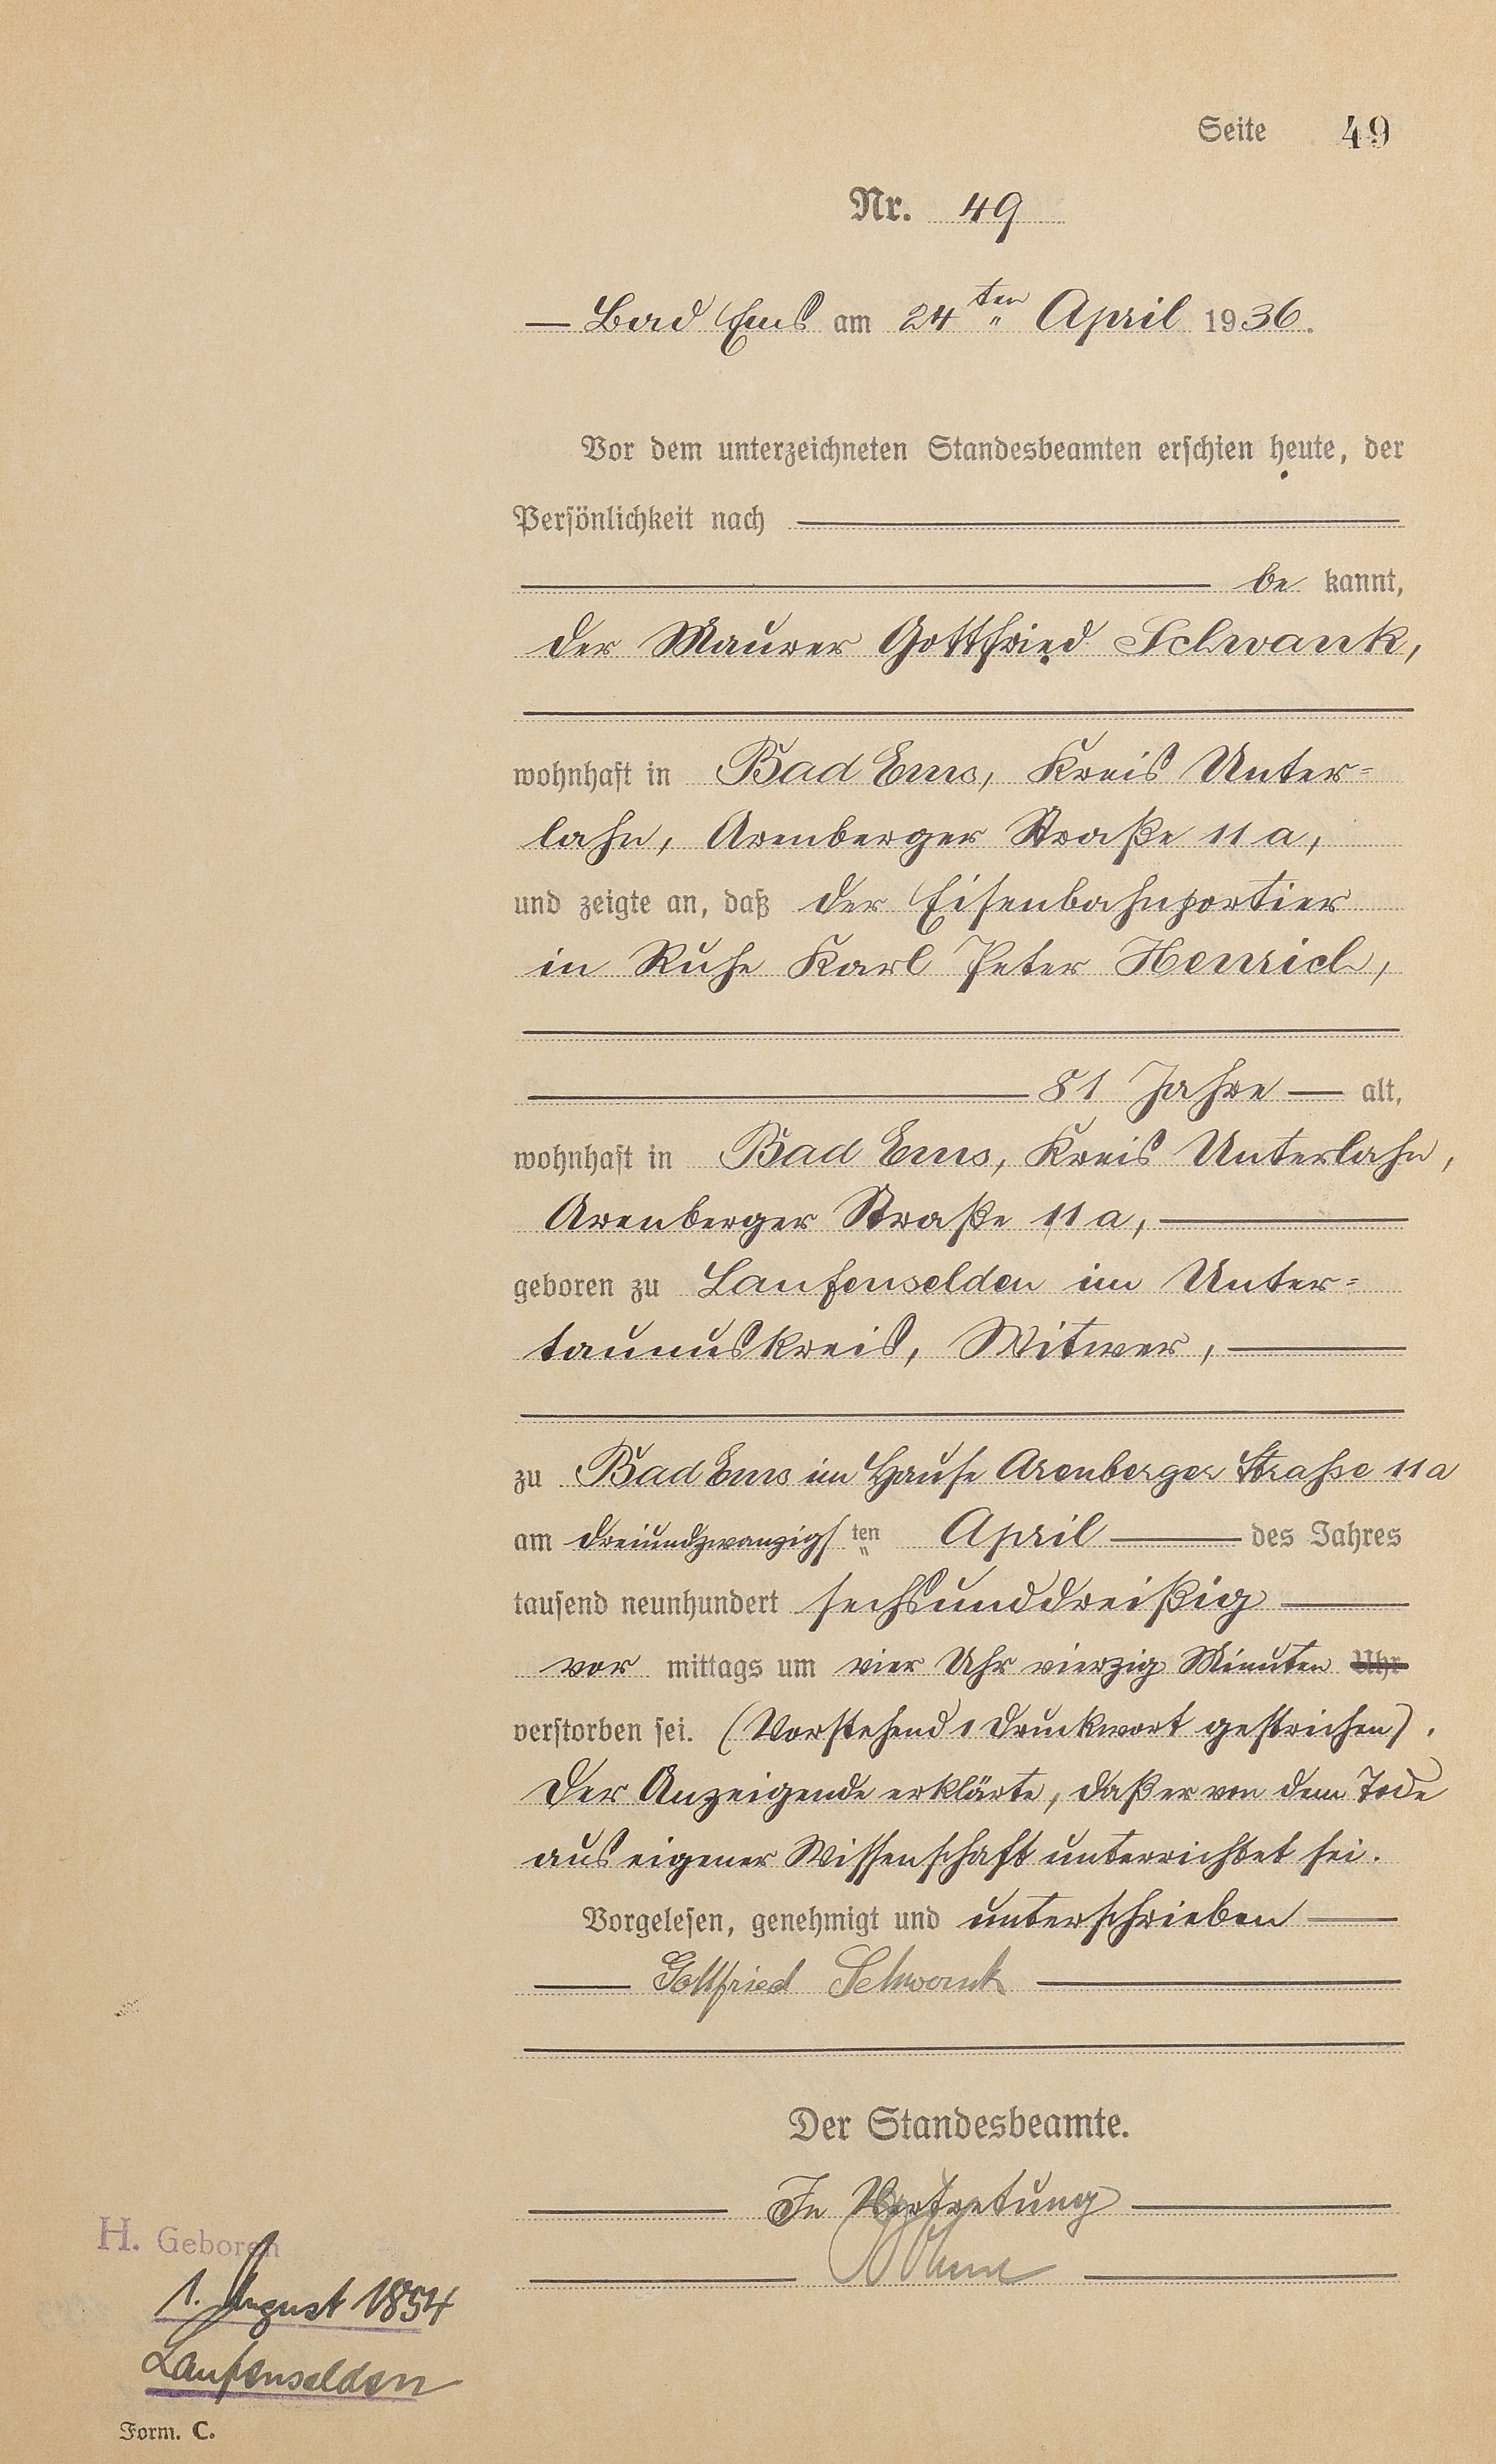 Seite 49
Nr. 49
Bad Ems am 24ten April 1936.
Vor dem unterzeichneten Standesbeamten erschien heute, der
Persönlichkeit nach
be kannt,
der Maurer Gottfried Schwank,
wohnhaft in Bad Ems, Kreis Unter-
lahn, Arenberger Straße 11a,
und zeigte an, daß der Eisenbahnportier
in Ruhe Karl Peter Henrich,
81 Jahre alt,
wohnhaft in Bad Ems, Kreis Unterlahn,
Arenberger Straße 11a,
geboren zu Laufenselden im Unter-
taunuskreis, Witwer,
zu Bad Ems im Hause Arenberger Strahse 11a
am dreiundzwanzigsten April des Jahres
tausend neunhundert sechsunddreißig
vor mittags um vier Uhr vierzig Minuten Uhr
verstorben sei. (Vorstehend 1 Druckwort gestrichen).
Der Anzeigende erklärte, daß er von dem Tode
aus eigener Wissenschaft unterrichtet sei.
Vorgelesen, genehmigt und unterschrieben
Gottfried Schwank
Der Standesbeamte.
In Vertretung
H. Geboren
1. August 1854
Laufenselden
Form. C.